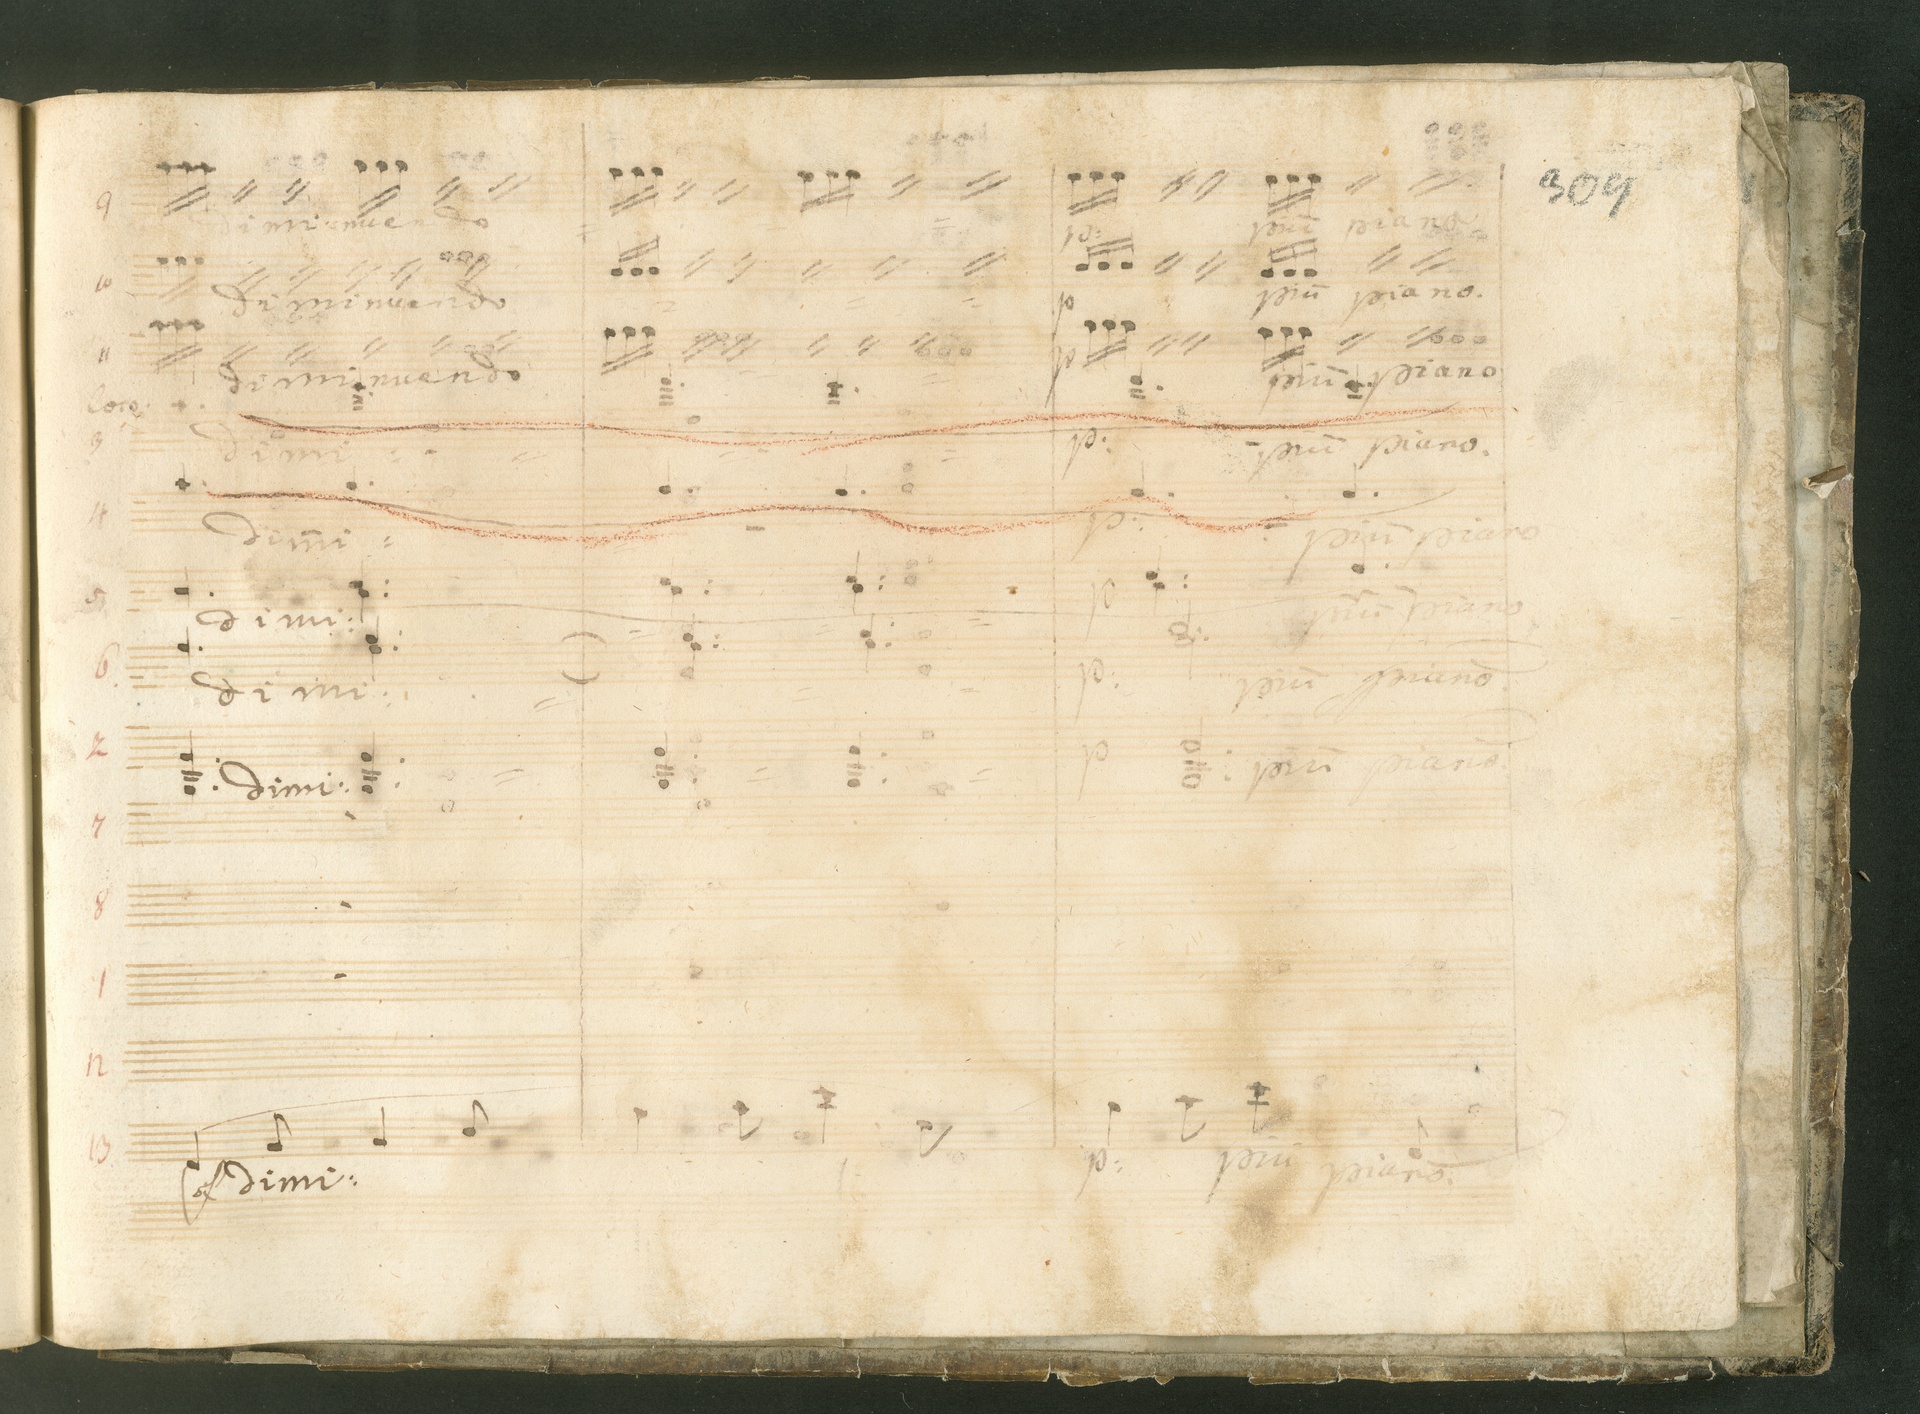 309
9
diminuendo
p: piu piano
10
diminuendo
p piu piano.
11
diminuendo
p piu piano
3
dimi
p: piu piano.
4
dimi
p: piu piano
5
dimi:
p piu piano
6
dimi:
p: piu piano.
2
dimi:
p piu piano.
7
8
1
12
13
dimi:
p: piu piano.